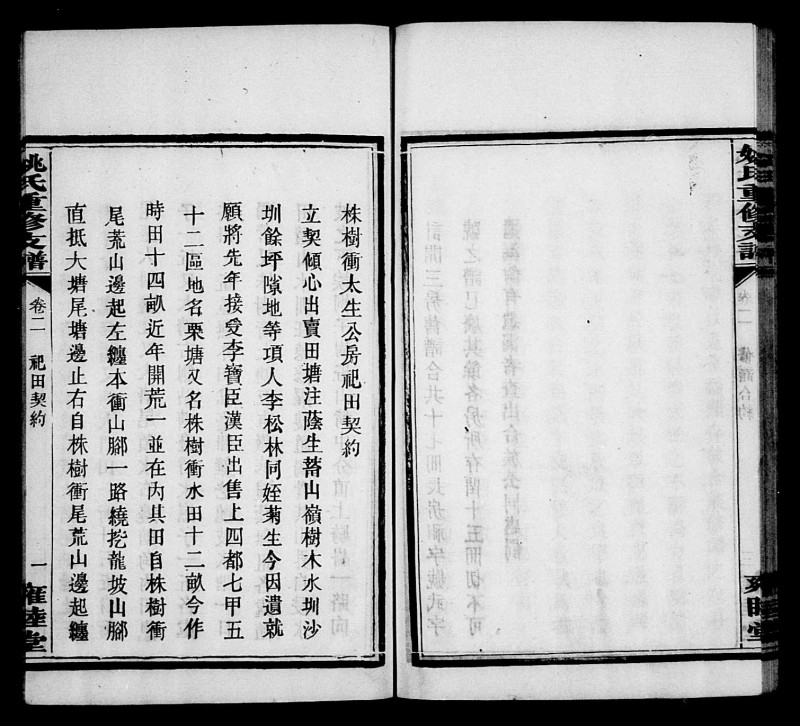 姚氏重修支譜
卷二
備酒合約
雍睦堂
株樹衝太生公房祀田契約
立契傾心出賣田塘注蔭生蓄山嶺樹木水圳沙
圳餘坪隙地等項人李松林同姪菊生今因遺就
願將先年接受李寶臣漢臣出售上四都七甲五
十二區地名栗塘又名株樹衝水田十二畝今作
時田十四畝近年開荒一並在內其田自株樹衝
尾荒山邊起左纏本衝山腳一路繞挖龍坡山腳
直抵大塘尾塘邊止右自株樹衝尾荒山邊起纏
姚氏重修支譜
卷二
祀田契約
一
雍睦堂